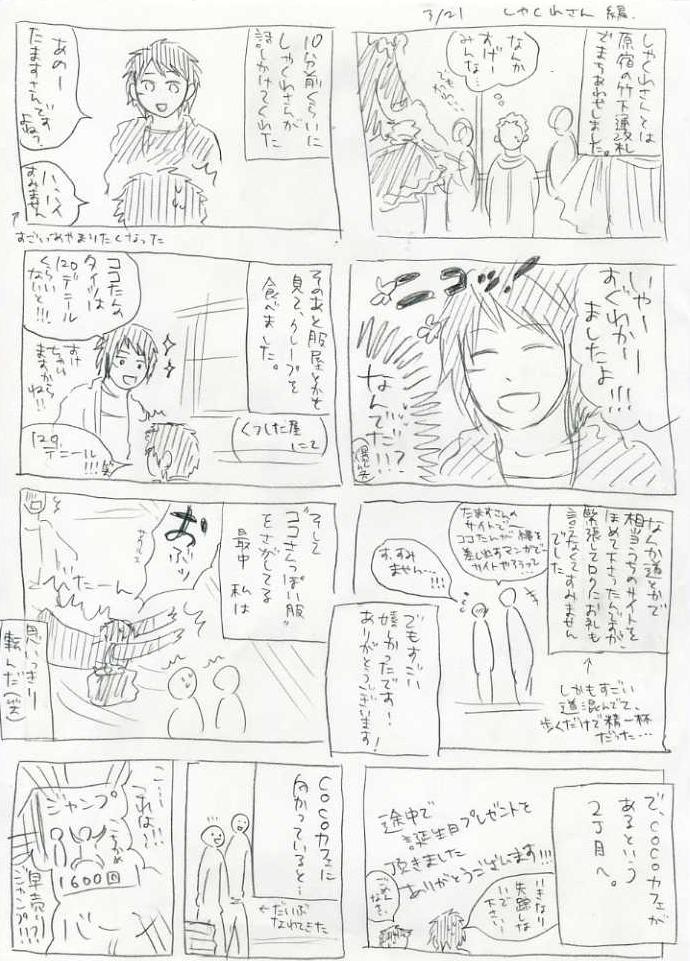 3/21 しゃくれさん 編.
しゃくれさんとは
原宿の竹下通改札
でまちあわせしました。
なんか
すげー
みんな…
でも
10分前くらいに
しゃくれさんが
話しかけてくれた
あのー
たますさんです
よね?
ハ、ハイ
すみません
↑すごいあやまりたくなった
いやー
すぐわかー
ましたよ!!!
ニコッ!
なんでだ!!?
そのあと服屋とかを
見て、クレープを
食べました。
(くつした屋
にて)
ココたんの
タイツは
120デニール
くらい
ないと!!!
すけ
ちゃい
ますからね!!
129
デニール
!!!
なんか道とかで
相当うちのサイトを
ほめて下さったんですが、
緊張してロクにお礼も
言えなくてすみません
でした
↑
しかもすごい
道混んでて、
歩くだけで精一杯
だった…
たますさんの
サイトでー
ココたんが
す、すみ
ません…!!!
でもすごい
嬉しかったです!
ありがとうございます!
そして
“ココさんっぽい服”
をさがしてる
最中 私は
おぶッ
思いっきり
転んだ(笑)
で、COCOカフェが
あるという
2丁目へ。
途中で
誕生日プレゼントを
頂きました
ありがとうございます!!!
いきなり
失踪しな
いで下さい
ごめん
なさい
COCOカフェに
向かっていると…
←だいぶ
なれてきた
こ…
これは…!!
ジャンプ
こちかめ
1600回
早売り
ジャンプ!!?
バーン